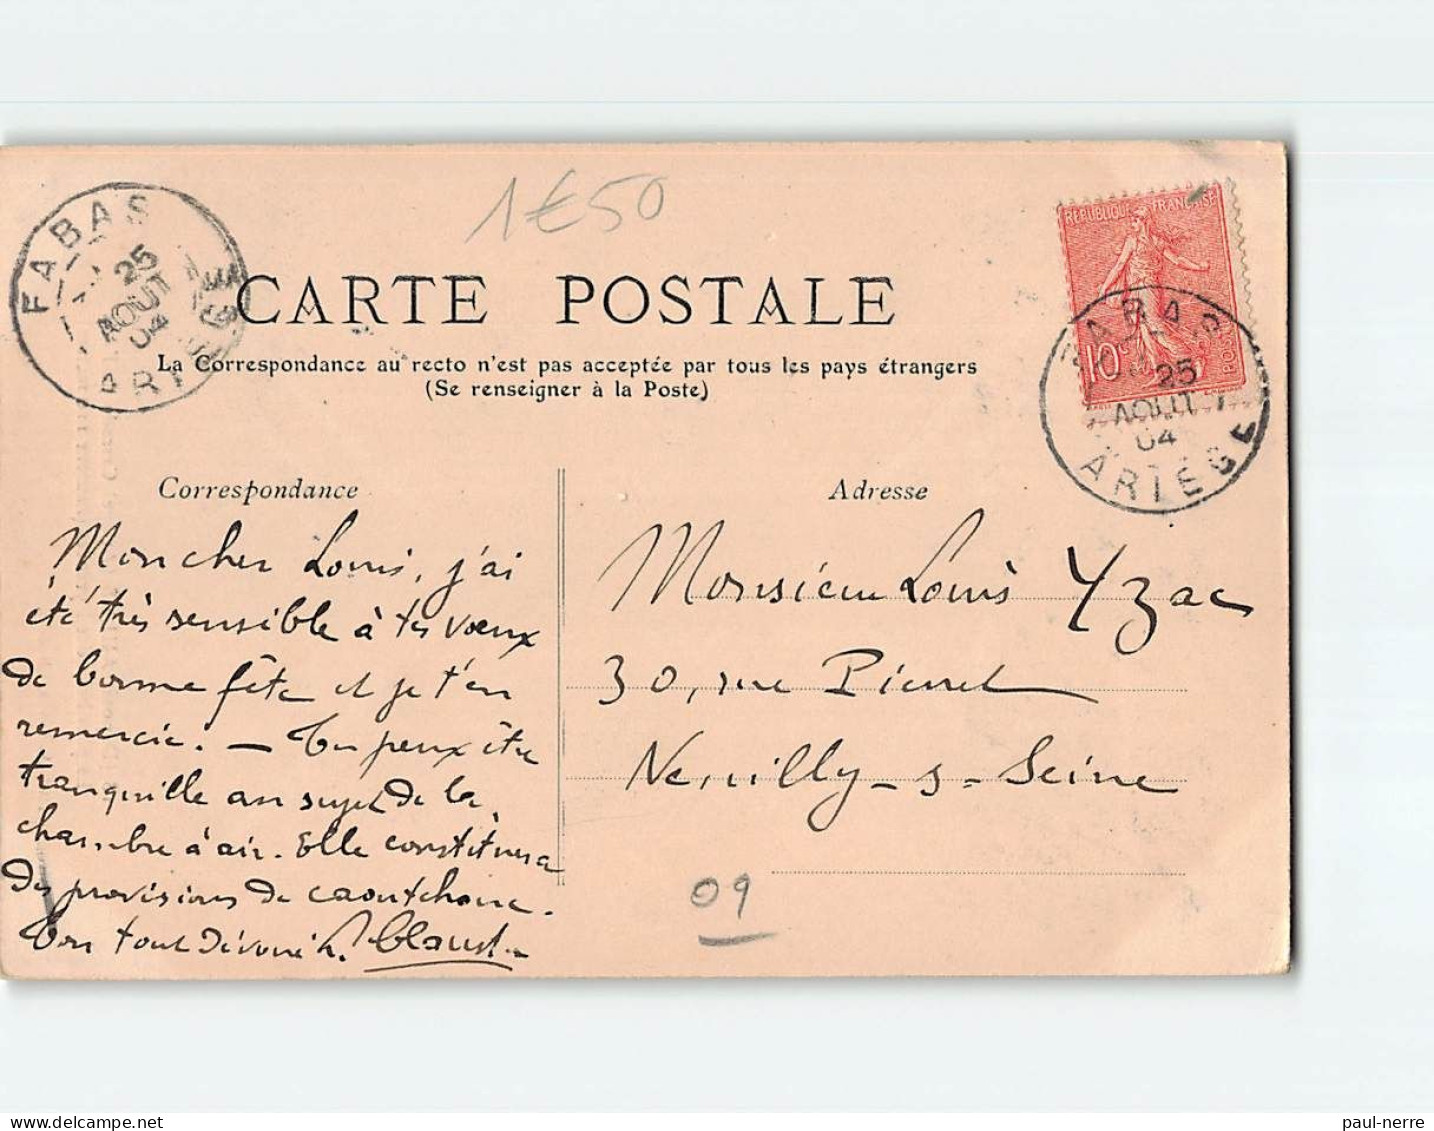 1€50
FABAS
25
AOUT
04
ARIEGE
REPUBLIQUE FRANÇAISE
10c
POSTES
FABAS
25
AOUT
04
ARIÈGE
CARTE POSTALE
La Correspondance au recto n'est pas acceptée par tous les pays étrangers
(Se renseigner à la Poste)
Correspondance
Mon cher Louis, j'ai
été très sensible à tes vœux
de bonne fête et je t'en
remercie. — Tu peux être
tranquille au sujet de la
chambre à air. Elle constituera
des provisions de caoutchouc.
Ton tout dévoué
Adresse
Monsieur Louis Yzac
30, rue Pierret
Neuilly-s-Seine
09
paul-nerre